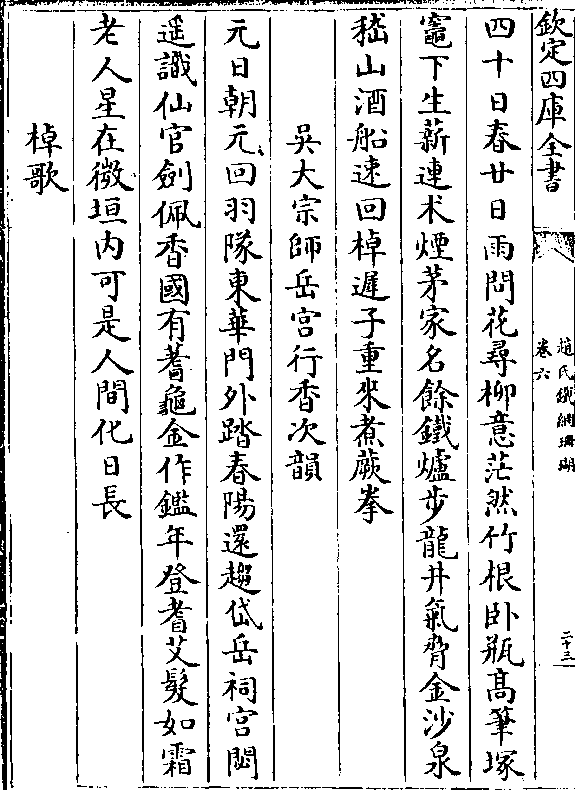 欽定四庫全書
趙氏鐵網珊瑚
卷六
二十三
四十日春廿日雨問花尋柳意茫然竹根卧瓶高筆塚
竈下生薪連术煙茅家名餘鐵爐步龍井氣脅金沙泉
嵇山酒船速回棹遲子重來煮蕨拳
吳大宗師岳宫行香次韻
元日朝元回羽隊東華門外踏春陽還趨岱岳祠宫閟
遥識仙官劍佩香國有蓍龜金作鑑年登耆艾髮如霜
老人星在微垣内可是人間化日長
棹歌